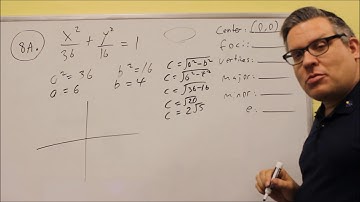 8A.
x²/36 + y²/16 = 1
a² = 36
a = 6
b² = 16
b = 4
c = √a²-b²
c = √6²-4²
c = √36-16
c = √20
c = 2√5
center: (0,0)
foci:
vertices:
major:
minor:
e: